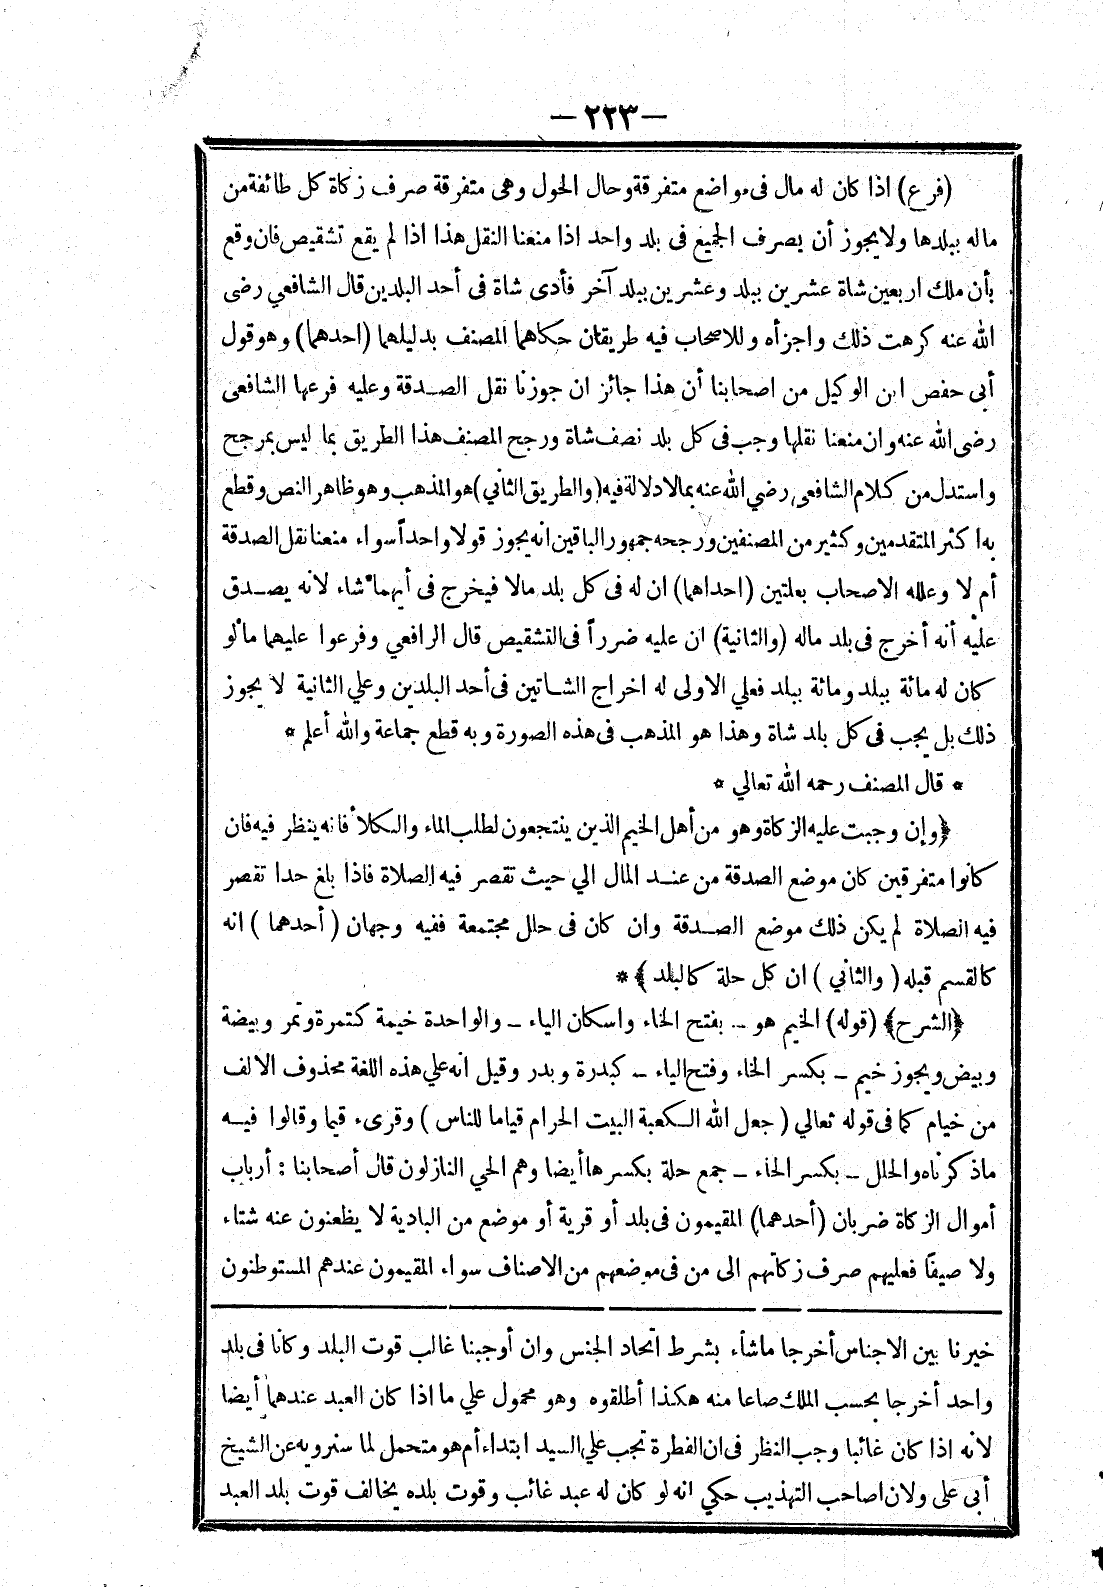 — ٢٢٣ —
(فرع) اذا كان له مال فى مواضع متفرقة وحال الحول وهى متفرقة صرف زكاة كل طائفة من
ماله ببلدها ولا يجوز أن يصرف الجميع فى بلد واحد اذا منعنا النقل هذا اذا لم يقع تشقيص فان وقع
بأن ملك اربعين شاة عشرين ببلد وعشرين ببلد آخر فأدى شاة فى أحد البلدين قال الشافعي رضى
الله عنه كرهت ذلك واجزأه وللاصحاب فيه طريقان حكاهما المصنف بدليلهما (احدهما) وهو قول
أبى حفص ابن الوكيل من اصحابنا أن هذا جائز ان جوزنا نقل الصدقة وعليه فرعها الشافعى
رضى الله عنه وان منعنا نقلها وجب فى كل بلد نصف شاة ورجح المصنف هذا الطريق بما ليس بمرجح
واستدل من كلام الشافعى رضي الله عنه بما لا دلالة فيه (والطريق الثاني) هو المذهب وهو ظاهر النص وقطع
به اكثر المتقدمين وكثير من المصنفين ورجحه جمهور الباقين انه يجوز قولا واحداً سواء منعنا نقل الصدقة
أم لا وعلله الاصحاب بعلتين (احداهما) ان له فى كل بلد مالا فيخرج فى أيهما شاء لانه يصدق
عليه أنه أخرج فى بلد ماله (والثانية) ان عليه ضرراً فى التشقيص قال الرافعي وفرعوا عليهما ما لو
كان له مائة ببلد ومائة ببلد فعلي الاولى له اخراج الشاتين فى أحد البلدين وعلي الثانية لا يجوز
ذلك بل يجب فى كل بلد شاة وهذا هو المذهب فى هذه الصورة وبه قطع جماعة والله أعلم *
* قال المصنف رحمه الله تعالي *
﴿وإن وجبت عليه الزكاة وهو من أهل الخيم الذين ينتجعون لطلب الماء والكلأ فانه ينظر فيه فان
كانوا متفرقين كان موضع الصدقة من عند المال الي حيث تقصر فيه الصلاة فاذا بلغ حدا تقصر
فيه الصلاة لم يكن ذلك موضع الصدقة وان كان فى حلل مجتمعة ففيه وجهان (أحدهما) انه
كالقسم قبله (والثاني) ان كل حلة كالبلد﴾ *
﴿الشرح﴾ (قوله) الخيم هو ــ بفتح الخاء واسكان الياء ــ والواحدة خيمة كتمرة وتمر وبيضة
وبيض ويجوز خيم ــ بكسر الخاء وفتح الياء ــ كبدرة وبدر وقيل انه علي هذه اللغة محذوف الالف
من خيام كما فى قوله تعالي (جعل الله الكعبة البيت الحرام قياما للناس) وقرىء قيما وقالوا فيه
ما ذكرناه والحلل ــ بكسر الحاء ــ جمع حلة بكسرها أيضا وهم الحي النازلون قال أصحابنا : أرباب
أموال الزكاة ضربان (أحدهما) المقيمون فى بلد أو قرية أو موضع من البادية لا يظعنون عنه شتاء
ولا صيفًا فعليهم صرف زكاتهم الى من فى موضعهم من الاصناف سواء المقيمون عندهم المستوطنون
خيرنا بين الاجناس أخرجا ماشاء بشرط اتحاد الجنس وان أوجبنا غالب قوت البلد وكانا فى بلد
واحد أخرجا بحسب الملك صاعا منه هكذا أطلقوه وهو محمول علي ما اذا كان العبد عندهما أيضا
لانه اذا كان غائبا وجب النظر فى ان الفطرة تجب علي السيد ابتداء أم هو متحمل لما سنرويه عن الشيخ
أبى على ولان صاحب التهذيب حكي انه لو كان له عبد غائب وقوت بلده يخالف قوت بلد العبد